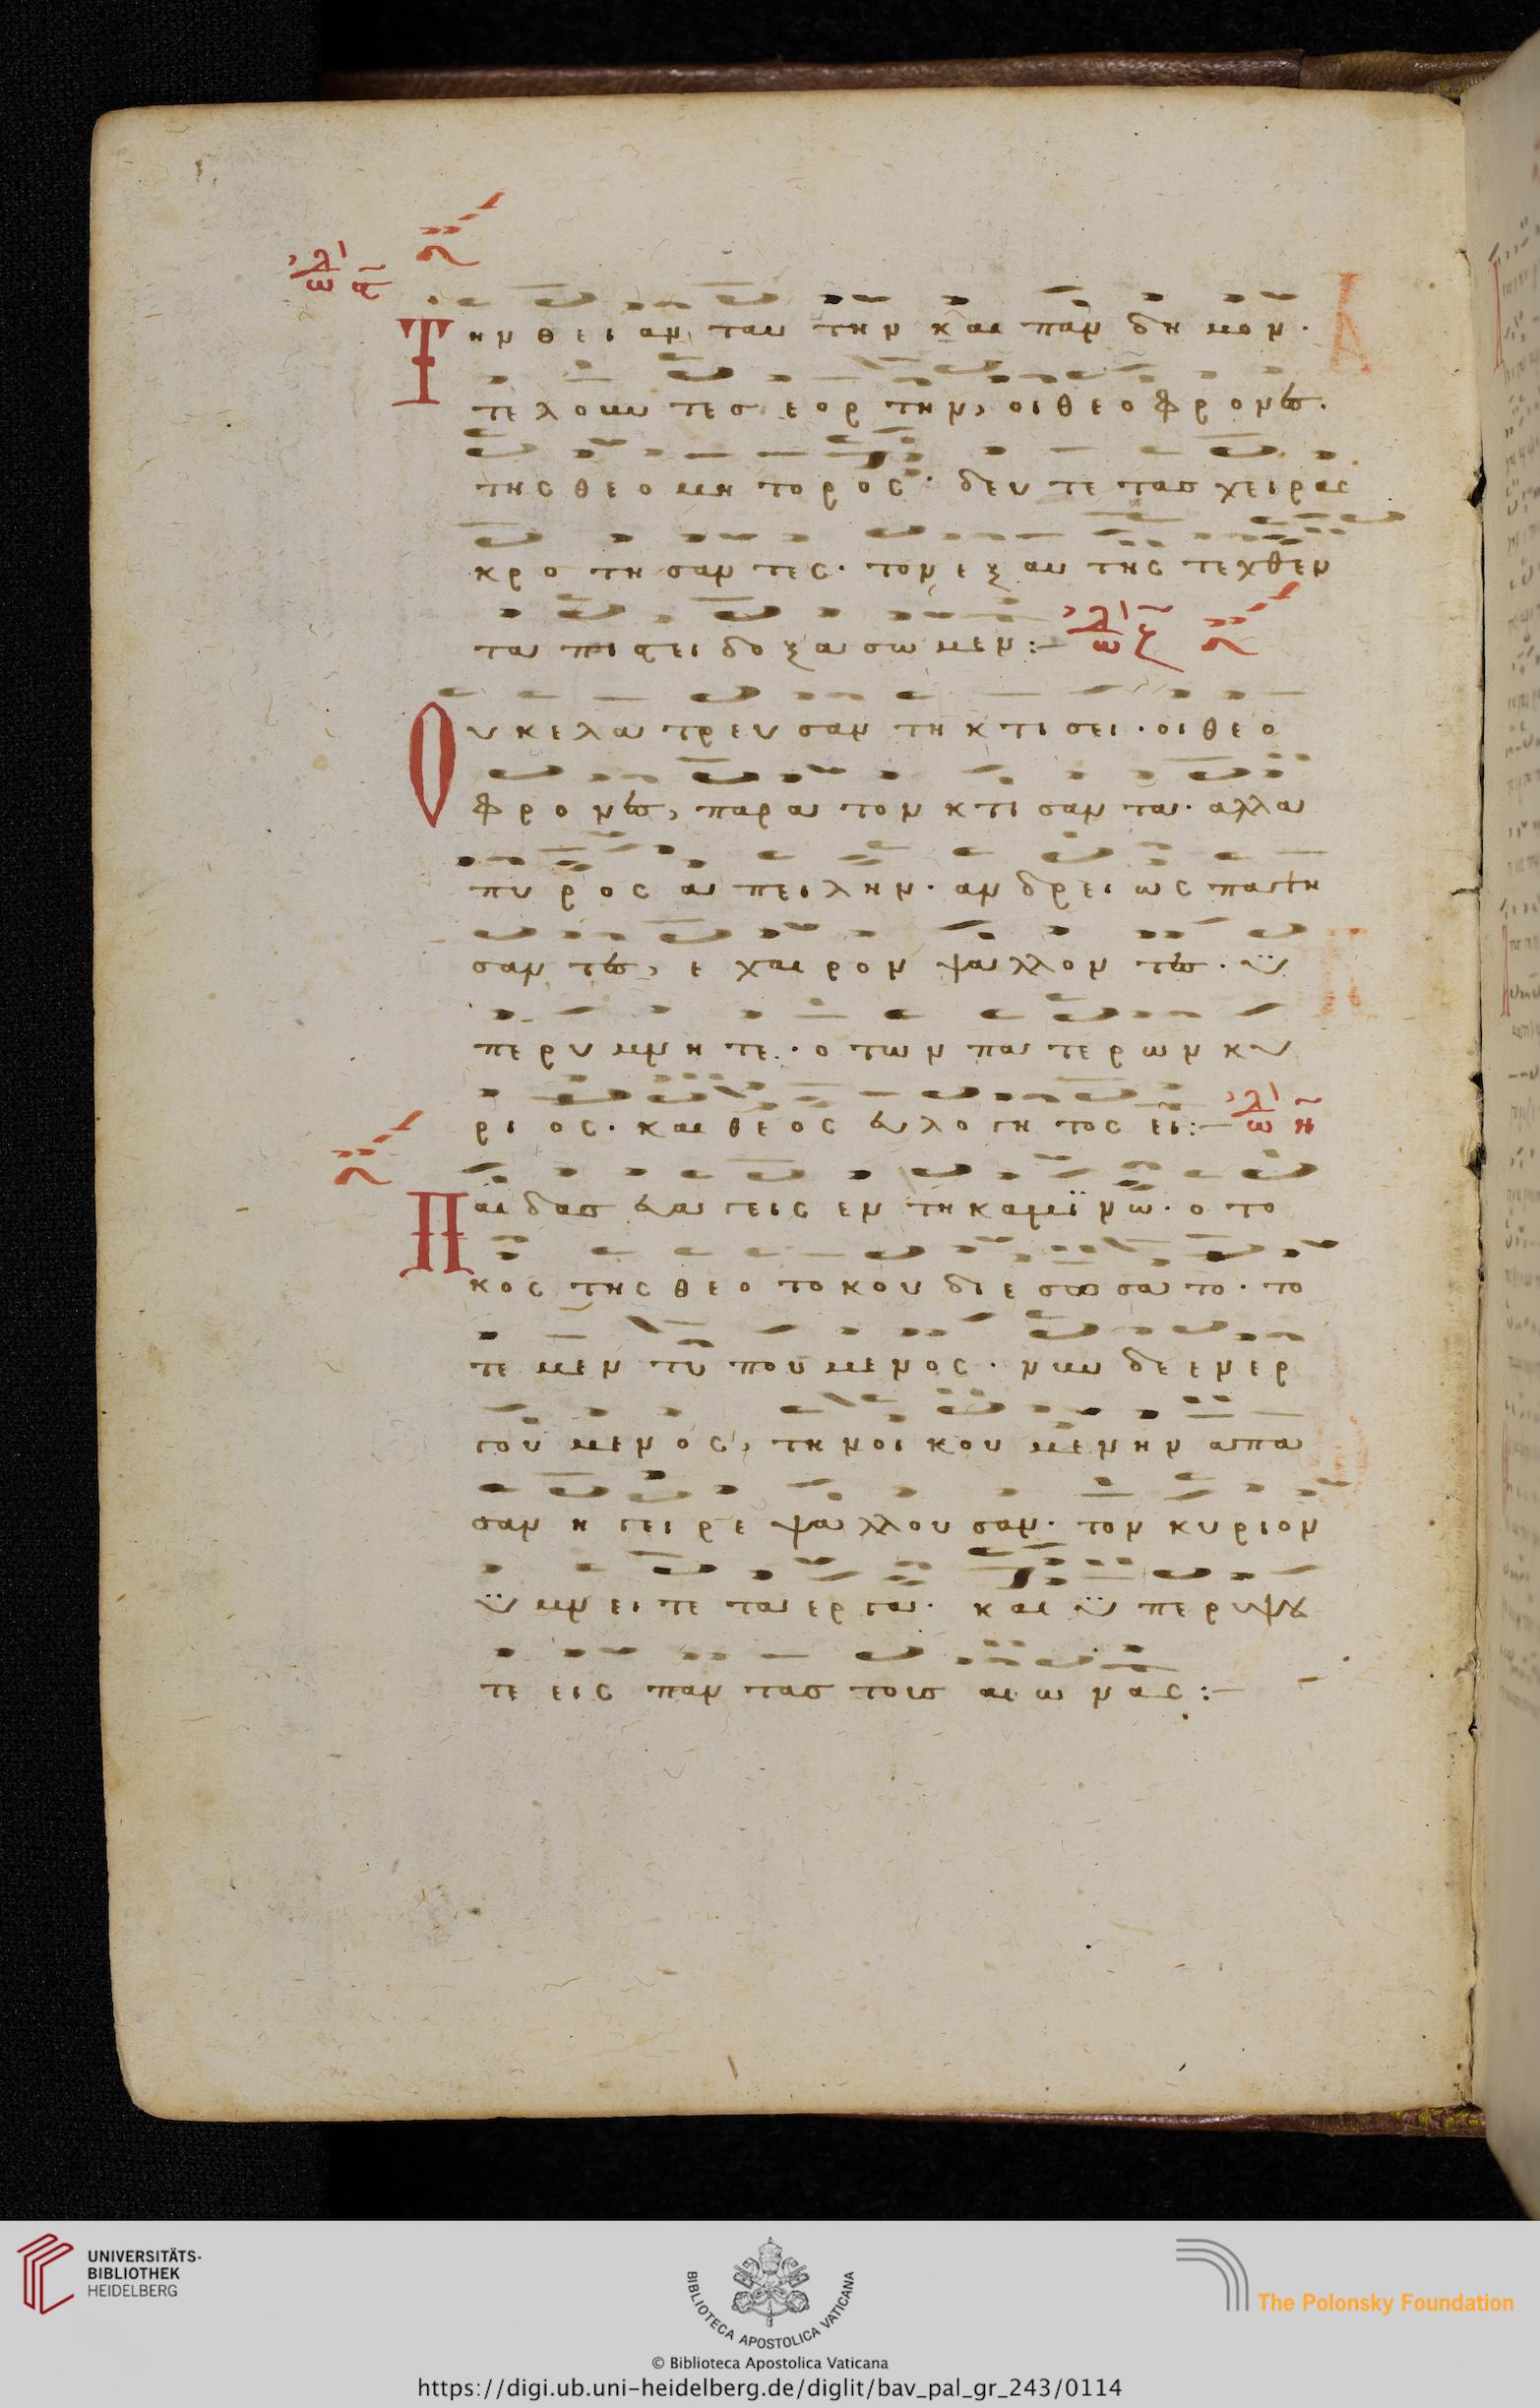 Την θει αν ταυ την και παν δη μον.
τε λουν τεσ εορ την, οι θεο φρονες.
της θεο μη τορος. δευ τε τας χειρας
κρο τη σαν τες. τον εξ αυ της τεχθεν
τα πιστει δοξα σω μεν:–
Ουκ ελα τρευ σαν τη κτι σει. οι θεο
φρονες, παρα τον κτι σαν τα. αλλα
πυ ρος α πει λην. αν δρει ως πατη
σαν τες, ε χαι ρον ψαλλον τες. ϋ
περυ μνη τε. ο των πα τε ρων κυ
ρι ος. και θεος ευλογη τος ει:–
Παι δας ευα γεις εν τη καμϊνω. ο το
κος της θεο τοκου διε σω σατο. το
τε μεν τυ που μενος. νυν δε ενερ
γου μενος, την οι κου μενην απα
σαν α γει ρε ψαλλου σαν. τον κυριον
ϋ μνει τε τα ερ γα. και ϋ περυψου
τε εις παν τας τους αι ω νας:–
UNIVERSITÄTS-
BIBLIOTHEK
HEIDELBERG
BIBLIOTECA APOSTOLICA VATICANA
The Polonsky Foundation
© Biblioteca Apostolica Vaticana
https://digi.ub.uni-heidelberg.de/diglit/bav_pal_gr_243/0114